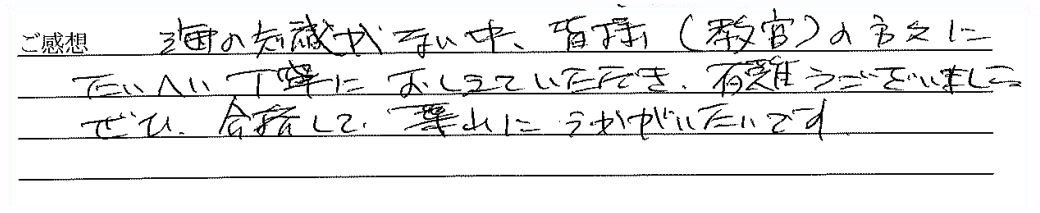 ご感想 海の知識がない中、皆様（教官）の方々に
たいへい丁寧におしえていただき、有難うございました
ぜひ、合格して、操山にうかがいたいです